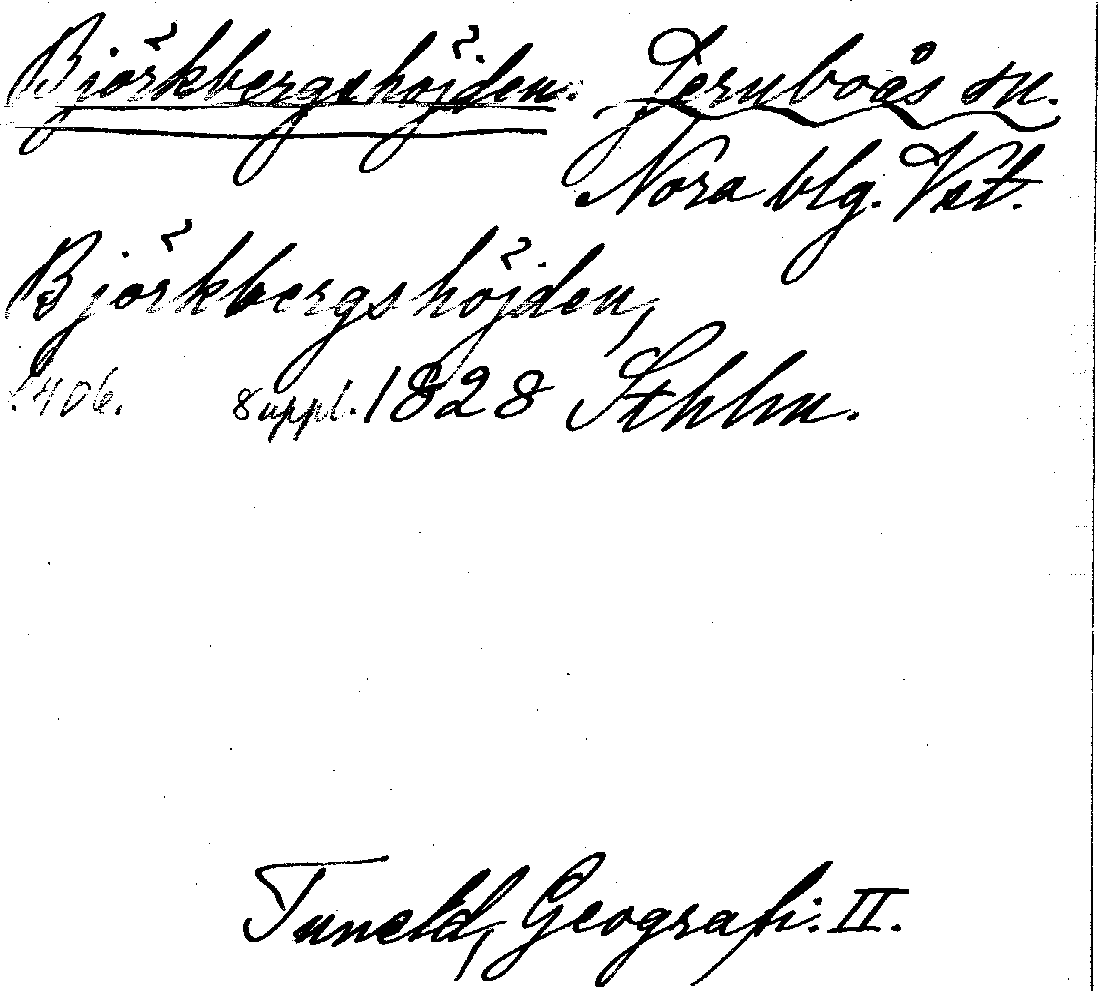 Björkbergshöjden. Jernboås sn.
Nora blg. Vst.
Björkbergshöjden,
s. 406. 8 uppl. 1828 Sthlm.
Tuneld, Geografi. II.